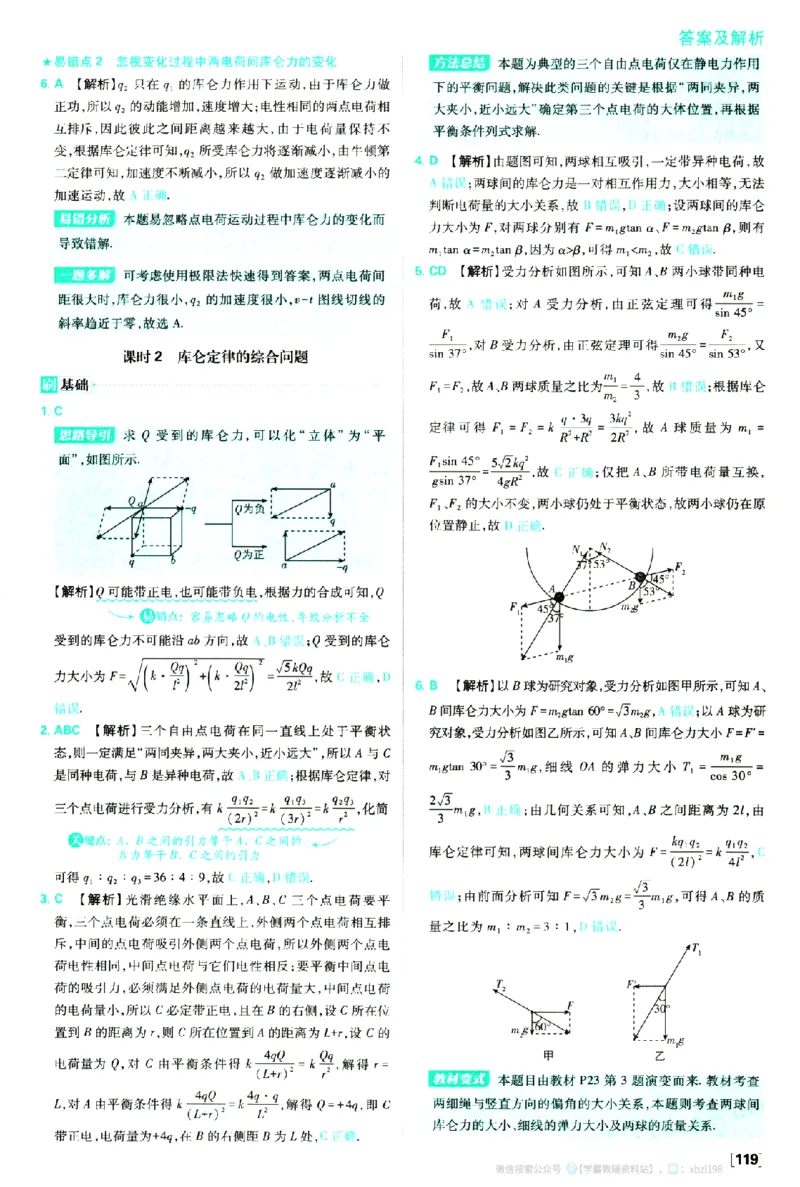 答案及解析
★易错点2 忽视变化过程中两电荷间库仑力的变化
6. A 【解析】q₂ 只在 q₁ 的库仑力作用下运动,由于库仑力做
正功,所以 q₂ 的动能增加,速度增大;电性相同的两点电荷相
互排斥,因此彼此之间距离越来越大,由于电荷量保持不
变,根据库仑定律可知,q₂ 所受库仑力将逐渐减小,由牛顿第
二定律可知,加速度不断减小,所以 q₂ 做加速度逐渐减小的
加速运动,故 A 正确.
易错分析 本题易忽略点电荷运动过程中库仑力的变化而
导致错解.
一题多解 可考虑使用极限法快速得到答案,两点电荷间
距很大时,库仑力很小,q₂ 的加速度很小,v-t 图线切线的
斜率趋近于零,故选 A.
课时2 库仑定律的综合问题
刷 基础
1. C
思路导引 求 Q 受到的库仑力,可以化“立体”为“平
面”,如图所示.
Q a -q q b
Q为负 a q
Q为正 a -q
【解析】Q 可能带正电,也可能带负电,根据力的合成可知,Q
易错点:容易忽略 Q 的电性,导致分析不全
受到的库仑力不可能沿 ab 方向,故 A、B 错误;Q 受到的库仑
力大小为 F=√((k·Qq/l²)²+(k·Qq/2l²)²)=√5kQq/2l²,故 C 正确,D
错误.
2. ABC 【解析】三个自由点电荷在同一直线上处于平衡状
态,则一定满足“两同夹异,两大夹小,近小远大”,所以 A 与 C
是同种电荷,与 B 是异种电荷,故 A、B 正确;根据库仑定律,对
三个点电荷进行受力分析,有 k q₁q₂/(2r)²=k q₁q₃/(3r)²=k q₂q₃/r²,化简
关键点:A、B之间的引力等于A、C之间的
斥力等于B、C之间的引力
可得 q₁:q₂:q₃=36:4:9,故 C 正确,D 错误.
3. C 【解析】光滑绝缘水平面上,A、B、C 三个点电荷要平
衡,三个点电荷必须在一条直线上,外侧两个点电荷相互排
斥,中间的点电荷吸引外侧两个点电荷,所以外侧两个点电
荷电性相同,中间点电荷与它们电性相反;要平衡中间点电
荷的吸引力,必须满足外侧点电荷的电荷量大,中间点电荷
的电荷量小,所以 C 必定带正电,且在 B 的右侧,设 C 所在位
置到 B 的距离为 r,则 C 所在位置到 A 的距离为 L+r,设 C 的
电荷量为 Q,对 C 由平衡条件得 k 4qQ/(L+r)²=k Qq/r²,解得 r=
L,对 A 由平衡条件得 k 4qQ/(L+r)²=k 4q·q/L²,解得 Q=+4q,即 C
带正电,电荷量为+4q,在 B 的右侧距 B 为 L 处,C 正确.
方法总结 本题为典型的三个自由点电荷仅在静电力作用
下的平衡问题,解决此类问题的关键是根据“两同夹异,两
大夹小,近小远大”确定第三个点电荷的大体位置,再根据
平衡条件列式求解.
4. D 【解析】由题图可知,两球相互吸引,一定带异种电荷,故
A 错误;两球间的库仑力是一对相互作用力,大小相等,无法
判断电荷量的大小关系,故 B 错误,D 正确;设两球间的库仑
力大小为 F,对两球分别有 F=m₁gtan α、F=m₂gtan β,则有
m₁tan α=m₂tan β,因为 α>β,可得 m₁<m₂,故 C 错误.
5. CD 【解析】受力分析如图所示,可知 A、B 两小球带同种电
荷,故 A 错误;对 A 受力分析,由正弦定理可得 m₁g/sin 45°=
F₁/sin 37°,对 B 受力分析,由正弦定理可得 m₂g/sin 45°=F₂/sin 53°,又
F₁=F₂,故 A、B 两球质量之比为 m₁/m₂=4/3,故 B 错误;根据库仑
定律可得 F₁=F₂=k q·3q/(R²+R²)=3kq²/2R²,故 A 球质量为 m₁=
F₁sin 45°/gsin 37°=5√2kq²/4gR²,故 C 正确;仅把 A、B 所带电荷量互换,
F₁、F₂ 的大小不变,两小球仍处于平衡状态,故两小球仍在原
位置静止,故 D 正确.
N₁ N₂ 37° 53° F₂
A B 45° 53°
F₁ 45° 37° m₂g
m₁g
6. B 【解析】以 B 球为研究对象,受力分析如图甲所示,可知 A、
B 间库仑力大小为 F=m₂gtan 60°=√3m₂g,A 错误;以 A 球为研
究对象,受力分析如图乙所示,可知 A、B 间库仑力大小 F=F'=
m₁gtan 30°=√3/3 m₁g,细线 OA 的弹力大小 T₁=m₁g/cos 30°=
2√3/3 m₁g,B 正确;由几何关系可知,A、B 之间距离为 2l,由
库仑定律可知,两球间库仑力大小为 F=kq₁q₂/(2l)²=k q₁q₂/4l²,C
错误;由前面分析可知 F=√3m₂g=√3/3 m₁g,可得 A、B 的质
量之比为 m₁:m₂=3:1,D 错误.
T₂ F m₂g 60° 甲
T₁ F' 30° m₁g 乙
教材变式 本题目由教材 P23 第 3 题演变而来. 教材考查
两细绳与竖直方向的偏角的大小关系,本题则考查两球间
库仑力的大小、细线的弹力大小及两球的质量关系.
[119]
微信搜索公众号【学霸教辅资料站】, :xbzl198